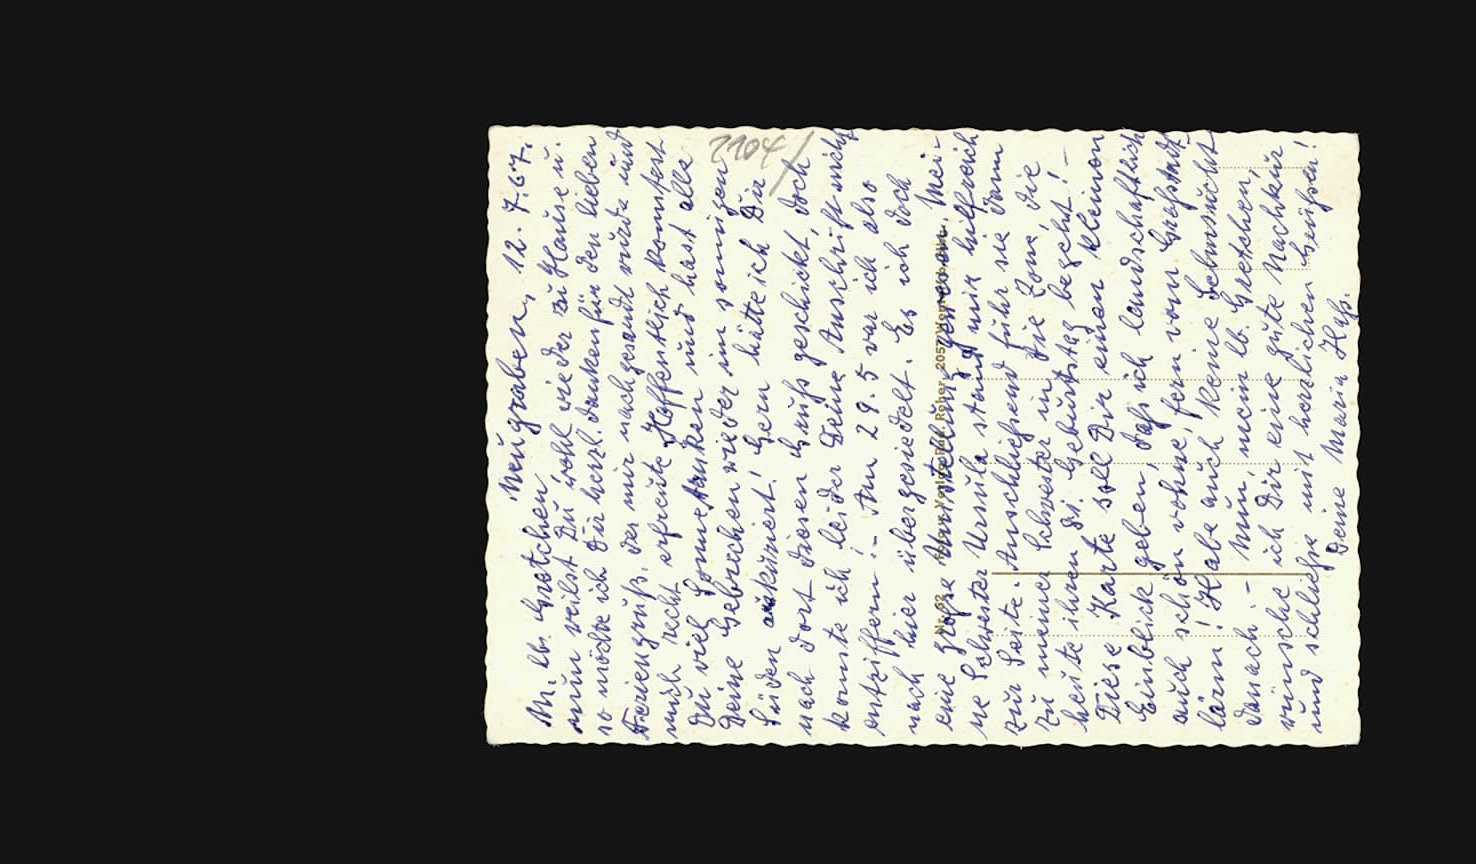 Neugraben, 12. 7. 67.
M. lb. Gretchen,
nun weilst Du wohl wieder zu Hause u.
so möchte ich Dir herzl. danken für den lieben
Feriengruß, der mir nachgesandt wurde und
mich recht erfreute. Hoffentlich konntest
Du viel Sonne tanken und hast alle
Deine Gebrechen wieder im sonnigen
Süden auskuriert! Gern hätte ich Dir
nach dort diesen Gruß geschickt, doch
konnte ich leider Deine Anschrift nicht
entziffern! – Am 29. 5 war ich also
nach hier übergesiedelt. Es ist doch
eine große Umstellung gewesen. Mei-
ne Schwester Ursula stand mir hilfreich
zur Seite. Anschließend fuhr sie dann
zu meiner Schwester in die Zone, die
heute ihren Geburtstag begeht! –
Diese Karte soll Dir einen kleinen
Einblick geben, daß ich landschaftlich
auch schön wohne, fern vom Großstadt
lärm! Habe auch keine Sehnsucht
danach – Nun, mein lb. Gretchen,
wünsche ich Dir eine gute Nachkur
und schließe mit herzlichen Grüßen!
Deine Maria
2104/
Nr. 62